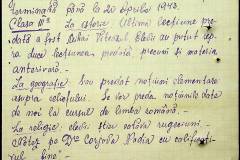 Terminând până la 20 Aprilie 1943.
Clasa III-a La istorie Ultima lecțiune pre-
dată a fost Mihai Viteazul. Elevii au putut re-
da lecțiunea predată, precum și materia
anterioară.
La geografie: S'au predat noțiuni elementare
asupra reliefului. Se vor preda noțiunile date
de noi la cursul de limba română.
La religie elevii știu câteva rugăciuni.
Notez pe Dra Nadia cu califica-
tivul "bine".